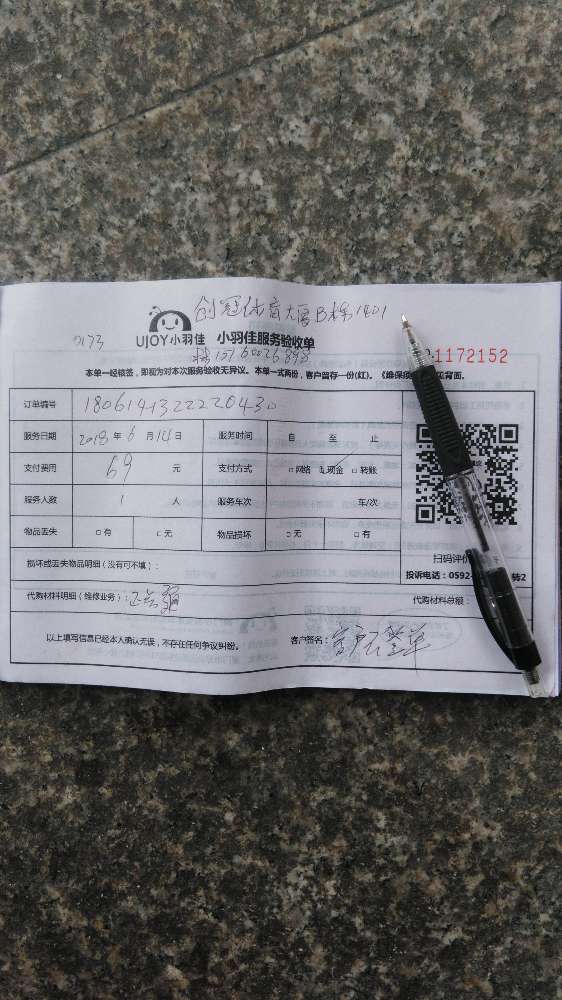 创冠体育大厦B栋1401
0173
UJOY小羽佳 小羽佳服务验收单
1172152
本单一经核签，即视为对本次服务验收无异议。本单一式两份，客户留存一份(红)。
订单编号 180614132222043
服务日期 2018 年 6 月 14 日 服务时间 自 至 止
支付费用 69 元 支付方式 □网络 □现金 □转账
服务人数 1 人 服务车次 车/次
物品丢失 □有 □无 物品损坏 □无 □有
扫码评价
损坏或丢失物品明细（没有可不填）：
投诉电话：0592- 转2
代购材料明细（维修业务）： 代购材料总额：
以上填写信息已经本人确认无误，不存在任何争议纠纷。 客户签名：